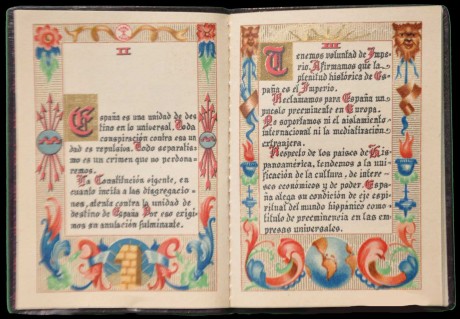 II
España es una unidad de des
tino en lo universal. Toda
conspiración contra esa uni
dad es repulsiva. Todo separatis
mo es un crimen que no perdona-
remos.
La Constitución vigente, en
cuanto incita a las disgregacio-
nes, atenta contra la unidad de
destino de España Por eso exigi
mos su anulación fulminante.
III
Tenemos voluntad de Impe-
rio. Afirmamos que la
plenitud histórica de Es
paña es el Imperio.
Reclamamos para España un
puesto preeminente en Europa.
No soportamos ni el aislamiento
internacional ni la mediatización
extranjera.
Respecto de los países de His
panoamérica, tendemos a la uni-
ficación de la cultura, de intere-
ses económicos y de poder. Espa
ña alega su condición de eje espi
ritual del mundo hispánico como
título de preeminencia en las em
presas universales.